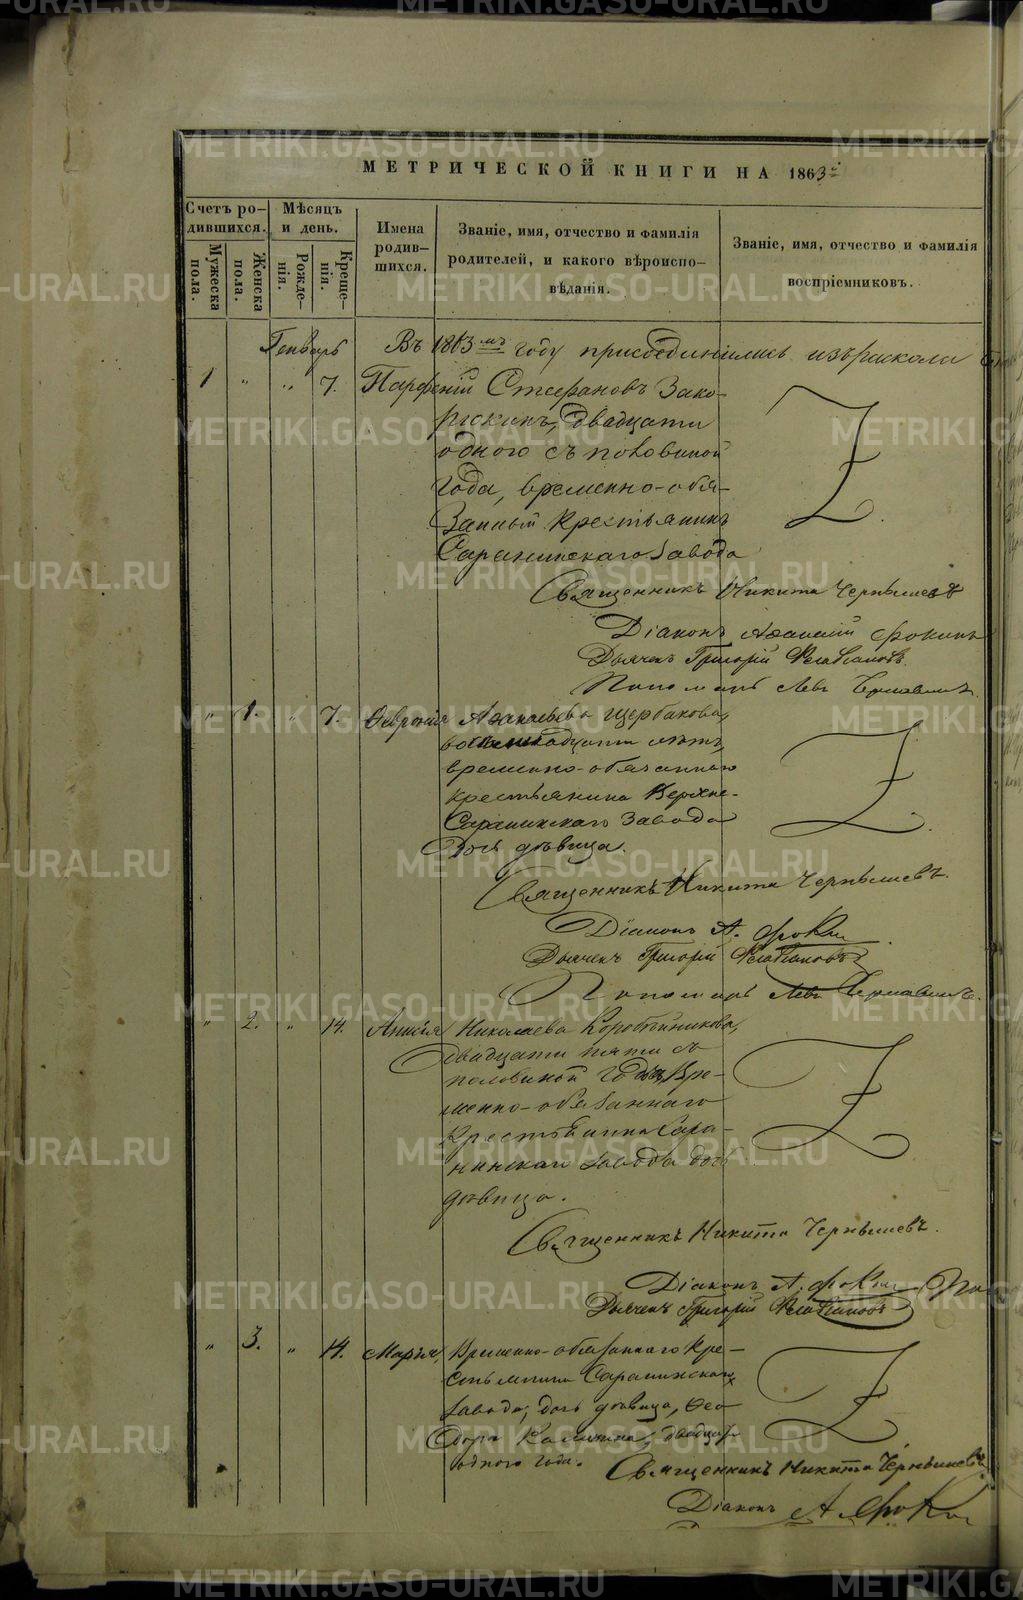 МЕТРИЧЕСКОЙ КНИГИ НА 1863й
Счетъ ро-
дившихся.
Мѣсяцъ
и день.
Имена
родив-
шихся.
Званіе, имя, отчество и фамилія
родителей, и какого вѣроиспо-
вѣданія.
Званіе, имя, отчество и фамилія
воспріемниковъ.
Мужеска
пола.
Женска
пола.
Рожде-
нія.
Креще-
нія.
Генварь Въ 1863мъ году присоединились изъ раскола
1 " " 7. Парфеній Стефановъ Зако-
ркинъ, двадцати
одного съ половиной
года, временно-обя-
занный крестьянинъ
Саранинскаго завода
Священникъ Никита Чернышевъ
Діаконъ Афанасій Фокинъ
Дьячекъ Григорій
Пономарь Левъ
" 1. " 7. Февронія Афанасьева Щербакова,
восемнадцати лѣтъ,
временно-обязаннаго
крестьянина Верхне-
Саранинскаго завода
дочь дѣвица.
Священникъ Никита Чернышевъ.
Діаконъ А. Фокин
Дьячекъ Григорій
Пономарь Левъ
" 2. " 14. Анисія Николаева Коробейникова,
двадцати пяти съ
половиной годъ, вре-
менно-обязаннаго
крестьянина Сара-
нинскаго завода дочь
дѣвица.
Священникъ Никита Чернышевъ.
Діаконъ А. Фокин По
Дьячекъ Григорій
" 3. " 14. Марія, временно-обязаннаго кре-
стьянина Саранинскаго
завода, дочь дѣвица, Ѳео-
дора двадцати
одного года.
Священникъ Никита Чернышевъ
Діаконъ А. Фокин
METRIKI.GASO-URAL.RU